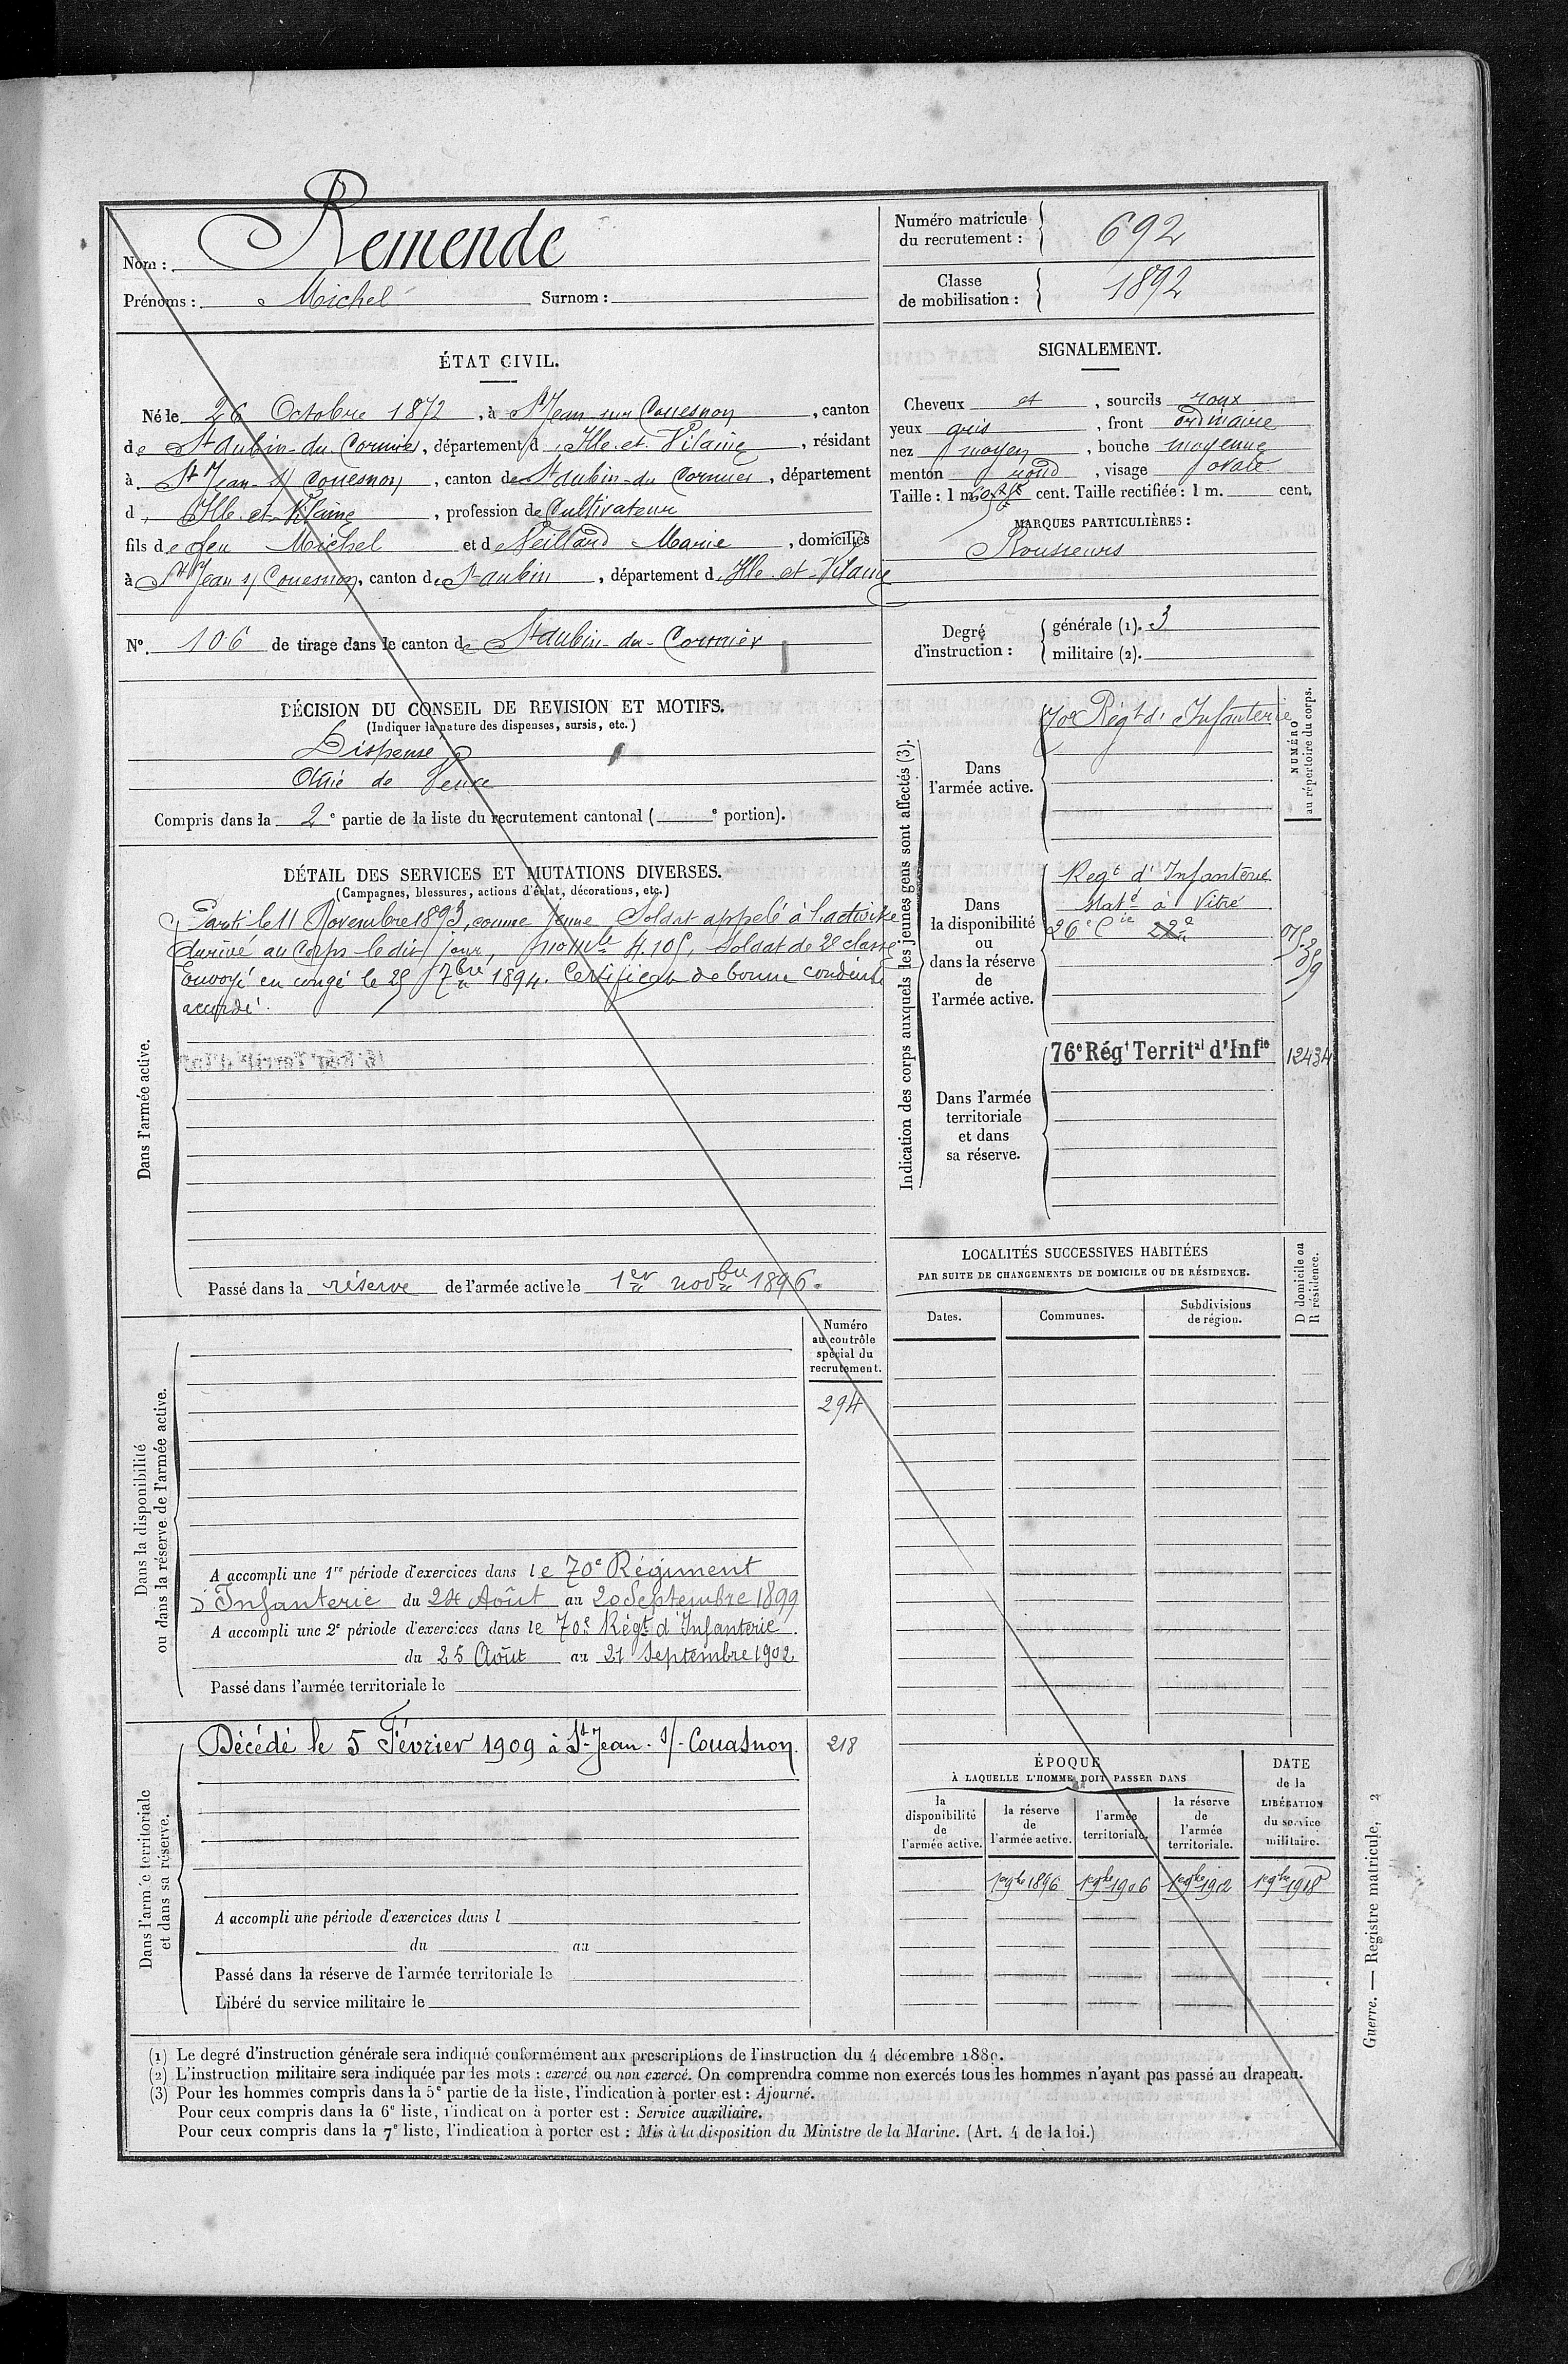 Nom : Remende
Prénoms : Michel Surnom :
Numéro matricule du recrutement : 692
Classe de mobilisation : 1892
ÉTAT CIVIL.
Né le 26 Octobre 1872, à St Jean sur Couesnon, canton
de St Aubin-du-Cormier, département d'Ille-et-Vilaine, résidant
à St Jean s/ Couesnon, canton de St Aubin-du Cormier, département
d'Ille-et-Vilaine, profession de Cultivateur
fils de feu Michel et de Veillard Marie, domiciliés
à St Jean s/ Couesnon, canton de St Aubin, département d'Ille-et-Vilaine
N° 106 de tirage dans le canton de St Aubin-du-Cormier
SIGNALEMENT.
Cheveux et, sourcils roux
yeux gris, front ordinaire
nez moyen, bouche moyenne
menton rond, visage ovale
Taille : 1 m. cent. Taille rectifiée : 1 m. cent.
MARQUES PARTICULIÈRES :
Rousseurs
Degré d'instruction : générale (1). 3
militaire (2).
DÉCISION DU CONSEIL DE REVISION ET MOTIFS.
(Indiquer la nature des dispenses, sursis, etc.)
Dispensé
Aîné de Veuve
Compris dans la 2e partie de la liste du recrutement cantonal ( e portion).
DÉTAIL DES SERVICES ET MUTATIONS DIVERSES.
(Campagnes, blessures, actions d'éclat, décorations, etc.)
Dans l'armée active.
Parti le 11 Novembre 1893, comme jeune Soldat appelé à l'activité
Arrivé au Corps le dit jour, no mle 4.105, soldat de 2e classe
Envoyé en congé le 25 7bre 1894. Certificat de bonne conduite
accordé.
Passé dans la réserve de l'armée active le 1er novbre 1896.
Indication des corps auxquels les jeunes gens sont affectés (3).
NUMÉRO au répertoire du corps.
Dans l'armée active.
70e Régt d'Infanterie
Dans la disponibilité ou dans la réserve de l'armée active.
Regt d'Infanterie
Statné à Vitré
26e Cie 22e
Dans l'armée territoriale et dans sa réserve.
76e Régt Territal d'Infie 12434
LOCALITÉS SUCCESSIVES HABITÉES
PAR SUITE DE CHANGEMENTS DE DOMICILE OU DE RÉSIDENCE.
D domicile ou R résidence.
Dates. Communes. Subdivisions de région.
Dans la disponibilité ou dans la réserve de l'armée active.
Numéro au contrôle spécial du recrutement.
294
A accompli une 1re période d'exercices dans le 70e Régiment
d'Infanterie du 24 Août au 20 Septembre 1899
A accompli une 2e période d'exercices dans le 70e Régt d'Infanterie.
du 25 Août au 21 Septembre 1902
Passé dans l'armée territoriale le
Dans l'armée territoriale et dans sa réserve.
Décédé le 5 Février 1909 à St-Jean-s/-Couasnon. 218
A accompli une période d'exercices dans l
du au
Passé dans la réserve de l'armée territoriale le
Libéré du service militaire le
ÉPOQUE
À LAQUELLE L'HOMME DOIT PASSER DANS
la disponibilité de l'armée active.
la réserve de l'armée active.
l'armée territoriale.
la réserve de l'armée territoriale.
DATE de la LIBÉRATION du service militaire.
1er 9bre 1896 1er 9bre 1906 1er 9bre 1912 1er 9bre 1918
(1) Le degré d'instruction générale sera indiqué conformément aux prescriptions de l'instruction du 4 décembre 1889.
(2) L'instruction militaire sera indiquée par les mots : exercé ou non exercé. On comprendra comme non exercés tous les hommes n'ayant pas passé au drapeau.
(3) Pour les hommes compris dans la 5e partie de la liste, l'indication à porter est : Ajourné.
Pour ceux compris dans la 6e liste, l'indication à porter est : Service auxiliaire.
Pour ceux compris dans la 7e liste, l'indication à porter est : Mis à la disposition du Ministre de la Marine. (Art. 4 de la loi.)
Guerre. — Registre matricule, 2